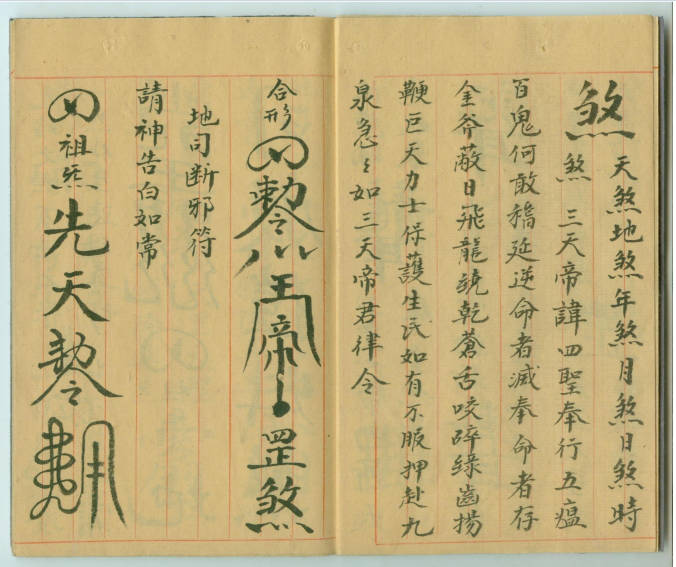 天煞地煞年煞月煞日煞時
煞煞 三天帝諱四聖奉行五瘟
百鬼何敢稽延逆命者滅奉命者存
金斧蔽日飛龍繞乾蒼舌咬碎綠齒揚
鞭巨天力士保護生民如有不服押赴九
泉急〻如三天帝君律令
合形
勅
王帝
罡煞
地司断邪符
請神告白如常
祖炁先天勅